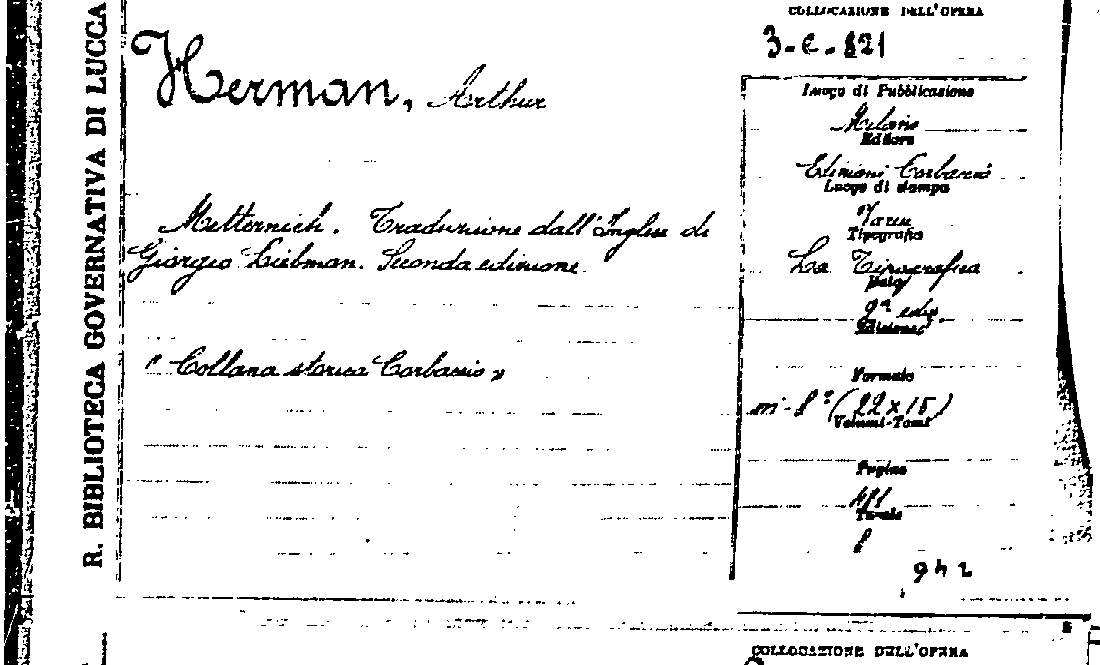 R. BIBLIOTECA GOVERNATIVA DI LUCCA
Herman, Arthur
Metternich. Traduzione dall'Inglese di
Giorgio Liebman. Seconda edizione.
"Collana storica Corbaccio"
COLLOCAZIONE DELL'OPERA
3-C-821
Luogo di Pubblicazione
Milano
Editore
Edizioni Corbaccio
Luogo di stampa
Varese
Tipografia
La Tipografica
2ª ediz.
Edizione
Formato
in-8° (22x15)
Volumi-Tomi
Pagine
Tavole
8
942
COLLOCAZIONE DELL'OPERA